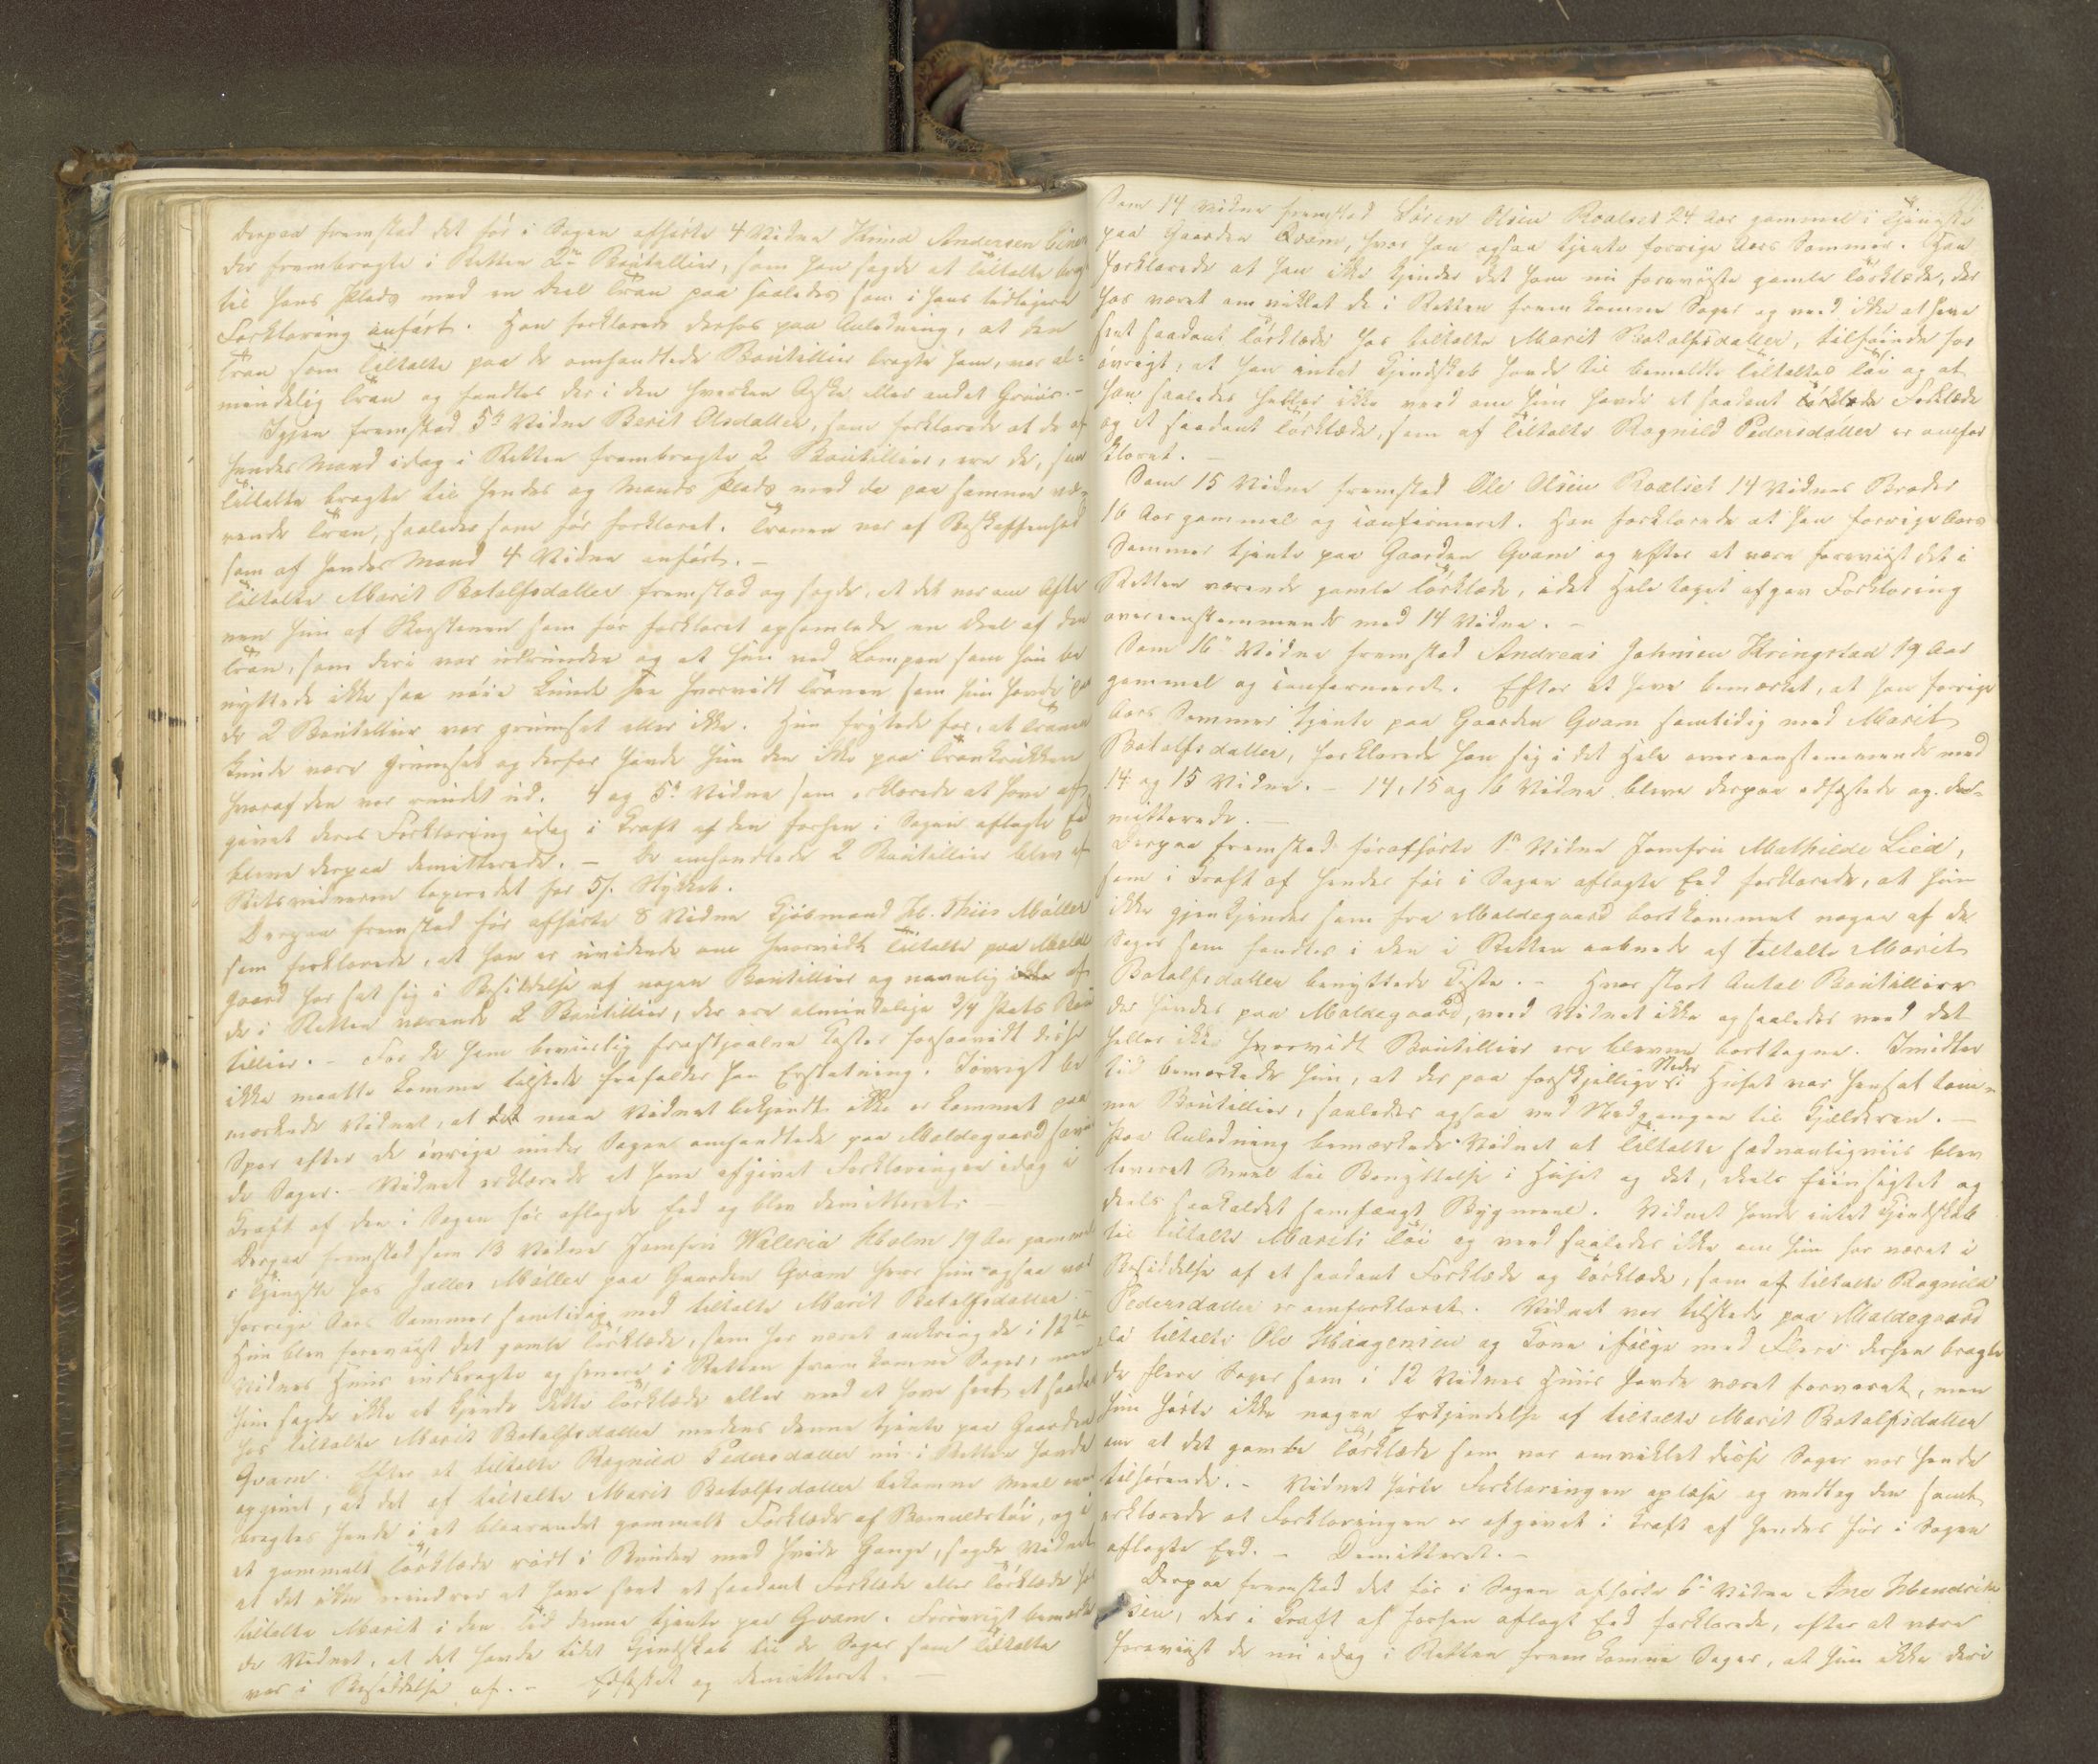 Derpaa fremstod det før i Sagen afhørte 4 Vidne Knud Andersen
der frembragte i Retten 2de Boutellier, som han sagde at Tiltalte
til hans Plads med en Deel Tran paa saaledes som i hans tidligere
Forklaring anført. Han forklarede derhos paa Anledning, at den
Tran som Tiltalte paa de omhandlede Boutellier bragte ham, var al-
mindelig Tran og fandtes der i den hverken Aske eller andet Gruus.-
Igjen fremstod 5te Vidne Berit Olsdatter, som forklarede at de af
hendes Mand idag i Retten frembragte 2 Boutellier, ere de, som
Tiltalte bragte til hendes og Mands Plads med de paa samme væ-
rende Tran, saaledes som før forklaret. Tranen var af Beskaffenhed
som af hendes Mand 4 Vidne anført.-
Tiltalte Marit Botolfsdatter fremstod og sagde, at det var om Afte
nen hun af som før forklaret opsamlede en Deel af den
Tran, som deri var udrunden og at hun ved Lampen som hun be
nyttede ikke saa nøie kunde see hvorvidt Tranen som hun havde paa
de 2 Boutellier var grumset eller ikke. Hun frygtede for, at Tranen
kunde være grumset og derfor havde hun den ikke paa Trankrukken
hvoraf den var rundet ud. 4 og 5te Vidne som erklærede at have af
givet deres Forklaring idag i Kraft af den forhen i Sagen aflagte Ed
bleve derpaa demitterede.- De omhandlede 2 Boutellier blev af
Retsvidnerne taxeret for 5 s. Stykket.
Derpaa fremstod før afhørte 8 Vidne Kjøbmand H. Thiis Møller
som forklarede, at han er uvidende om hvorvidt Tiltalte paa Molde
gaard har sat sig i Besiddelse af nogen Boutellier og navnlig ikke af
de i Retten værende 2 Boutellier, der ere almindelige 3/4 Pots Bou
tellier.- For de ham beviislig frastjaalne Koster forsaavidt disse
ikke maatte komme tilstede frafalder han Erstatning. Iøvrigt be
mærkede Vidnet, at det maa Vidnet bekjendt ikke er kommet paa
Spor efter de øvrige under Sagen omhandlede paa Moldegaard savne
de Sager.- Vidnet erklærede at have afgivet Forklaringen idag i
Kraft af den i Sagen før aflagte Ed og blev demitteret.-
Derpaa fremstod som 13 Vidne Jomfru Waleria Holm 19 Aar gammel
i Tjeneste hos Møller paa Gaarden Qvam hvor hun ogsaa var
forrige Aars Sommer samtidig med tiltalte Marit Botolfsdatter.-
Hun blev foreviist det gamle Tørklæde, som har været omkring de i 12te
Vidnes Huus indbragte og senere i Retten fremkomne Sager, men
hun sagde ikke at kjende dette Tørklæde eller ved at have seet et saadant
hos tiltalte Marit Botolfsdatter medens denne tjente paa Gaarden
Qvam. Efter at tiltalte Ragnild Pedersdatter nu i Retten havde
opgivet, at det af tiltalte Marit Botolfsdatter bekomne Meel
bragtes hende i et blaarandet gammelt Forklæde af Bomuldstøi, og i
et gammelt Tørklæde rødt i Bunden med hvide Gange, sagde Vidnet
at det ikke mindes at have seet et saadant Forklæde eller Tørklæde hos
tiltalte Marit i den Tid denne tjente paa Qvam. Forøvrigt bemærke
de Vidnet, at det havde lidet Kjendskab til de Sager som Tiltalte
var i Besiddelse af.- Edfæstet og demitteret.-
Som 14 Vidne fremstod Søren Olsen Roalset 24 Aar gammel i Tjeneste
paa Gaarden Qvam, hvor han ogsaa tjente forrige Aars Sommer. Han
forklarede at han ikke kjender det ham nu foreviiste gamle Tørklæde, der
har været omviklet de i Retten fremkomne Sager og ved ikke at have
seet saadant Tørklæde hos tiltalte Marit Botolfsdatter, tilføiende for
øvrigt, at han intet Kjendskab havde til bemeldte Tiltaltes Tøi og at
han saaledes heller ikke veed om hun havde et saadant Forklæde
og et saadant Tørklæde, som af tiltalte Ragnild Pedersdatter er omfor
klaret.-
Som 15 Vidne fremstod Ole Olsen Roalset 14 Vidnes Broder
16 Aar gammel og confirmeret. Han forklarede at han forrige Aars
Sommer tjente paa Gaarden Qvam og efter at være foreviist det i
Retten værende gamle Tørklæde, i det Hele taget afgav Forklaring
overeensstemmende med 14 Vidne.-
Som 16de Vidne fremstod Andreas Johnsen Kringstad 19 Aar
gammel og confirmeret. Efter at have bemærket, at han forrige
Aars Sommer tjente paa Gaarden Qvam samtidig med Marit
Botolfsdatter, forklarede han sig i det Hele overeensstemmende med
14 og 15 Vidne.- 14, 15 og 16 Vidne bleve derpaa edfæstede og de-
mitterede.-
Derpaa fremstod førafhørte 1ste Vidne Jomfru Mathilde Lied,
som i Kraft af hendes før i Sagen aflagte Eed forklarede, at hun
ikke gjenkjender som fra Moldegaard bortkommet nogen af de
Sager som fandtes i den i Retten aabnede af tiltalte Marit
Botolfsdatter benyttede Kiste.- Hvor stort Antal Boutellier
der havdes paa Moldegaard, veed Vidnet ikke og saaledes veed det
heller ikke hvorvidt Boutellier ere blevne borttagne. Imidler
tid bemærkede hun, at der paa forskjellige Steder i Huset var hensat tom-
me Boutellier, saaledes ogsaa ved Nedgangen til Kjælderen.-
Paa Anledning bemærkede Vidnet at Tiltalte sædvanligviis blev
leveret Meel til Benyttelse i Huset og det, deels fiinsigtet og
deels saakaldet Bygmeel. Vidnet havde intet Kjendskab
til tiltalte Marits Tøi og veed saaledes ikke om hun har været i
Besiddelse af et saadant Forklæde og Tørklæde, som af tiltalte Ragnild
Pedersdatter er omforklaret. Vidnet var tilstede paa Moldegaard
da tiltalte Ole Haagensen og Kone ifølge med Flere derhen bragte
de flere Sager som i 12 Vidnes Huus havde været forvaret, men
hun hørte ikke nogen Erkjendelse af tiltalte Marit Botolfsdatter
om at det gamle Tørklæde som var omviklet disse Sager var hende
tilhørende.- Vidnet hørte Forklaringen oplæse og vedtog den samt
erklærede at Forklaringen er afgivet i Kraft af hendes før i Sagen
aflagte Eed.- Demitteret.-
Derpaa fremstod det før i Sagen afhørte 6te Vidne Ane Hendrik
sen, der i Kraft af forhen aflagt Eed forklarede, efter at være
foreviist de nu idag i Retten fremkomne Sager, at hun ikke deri